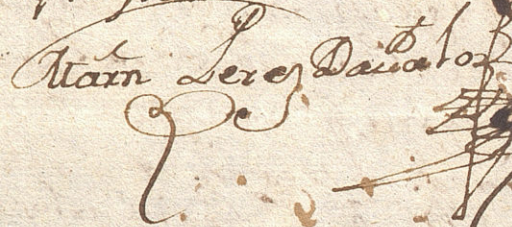 Martn Peres Daualos